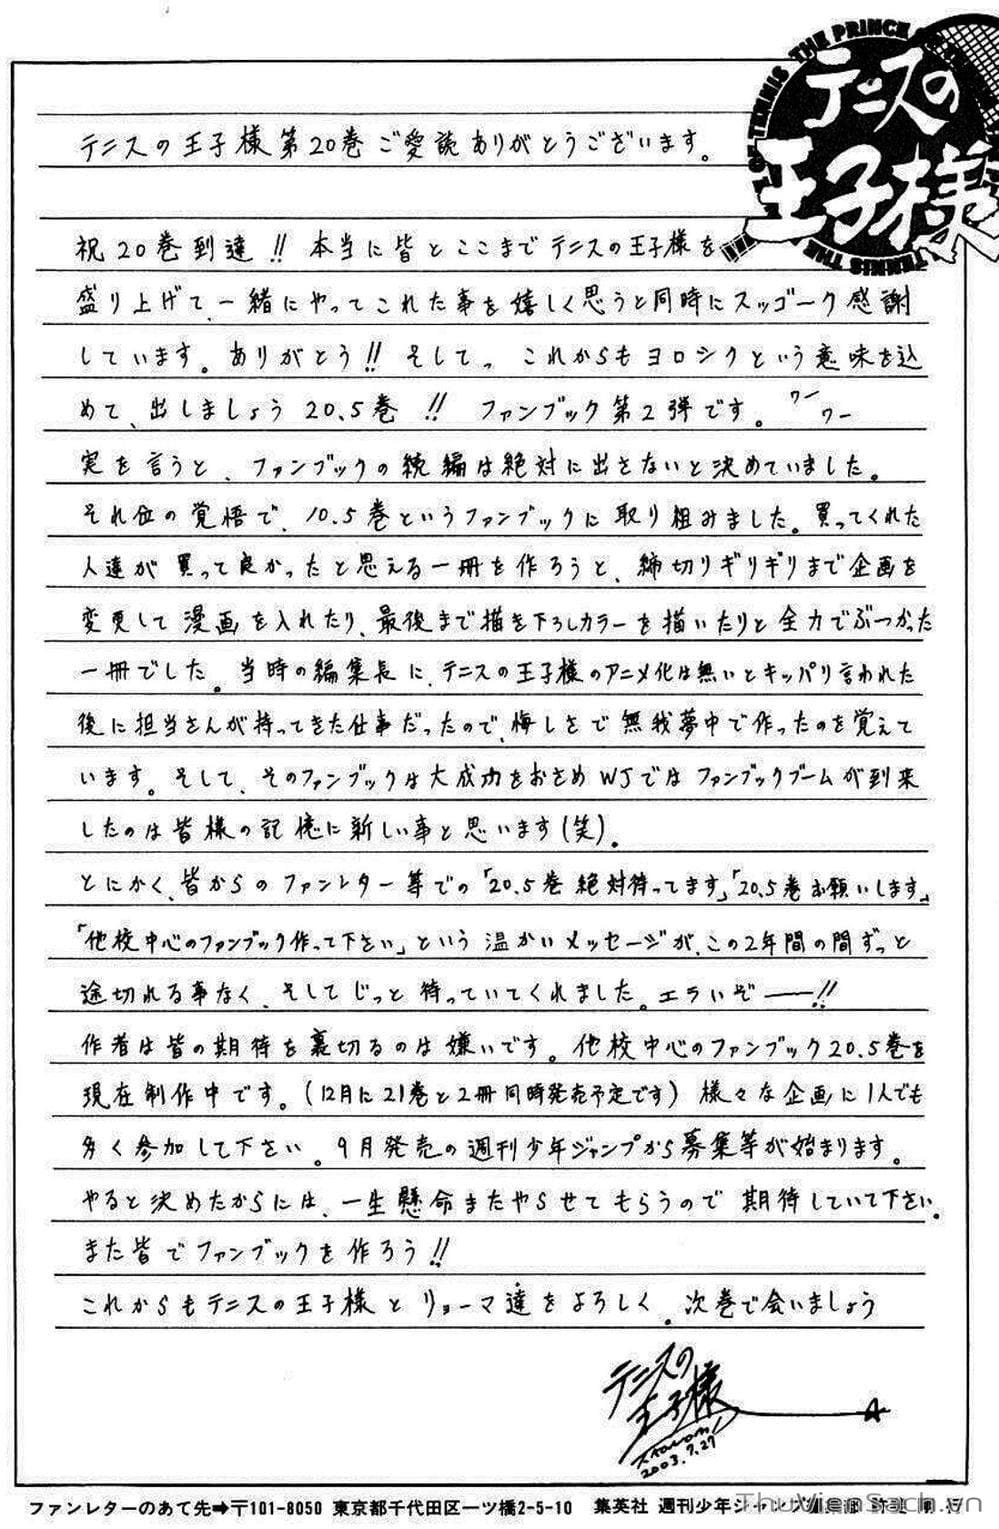 THE PRINCE OF TENNIS
テニスの
王子様
THE PRINCE OF TENNIS
テニスの王子様第20巻ご愛読ありがとうございます。
祝20巻到達!! 本当に皆とここまでテニスの王子様を
盛り上げて、一緒にやってこれた事を嬉しく思うと同時にスッゴーク感謝
しています。ありがとう!! そしてっ これからもヨロシクという意味を込
めて、出しましょう20.5巻!! ファンブック第2弾です。ワーワー
実を言うと、ファンブックの続編は絶対に出さないと決めていました。
それ位の覚悟で、10.5巻というファンブックに取り組みました。買ってくれた
人達が買って良かったと思える一冊を作ろうと、締切りギリギリまで企画を
変更して漫画を入れたり、最後まで描き下ろしカラーを描いたりと全力でぶつかった
一冊でした。当時の編集長に、テニスの王子様のアニメ化は無いとキッパリ言われた
後に担当さんが持ってきた仕事だったので、悔しさで無我夢中で作ったのを覚えて
います。そして、そのファンブックは大成功をおさめWJではファンブックブームが到来
したのは皆様の記憶に新しい事と思います(笑)。
とにかく、皆からのファンレター等での「20.5巻絶対待ってます」「20.5巻お願いします」
「他校中心のファンブック作って下さい」という温かいメッセージが、この2年間の間ずっと
途切れる事なく、そしてじっと待っていてくれました。エラいぞ――!!
作者は皆の期待を裏切るのは嫌いです。他校中心のファンブック20.5巻を
現在制作中です。(12月に21巻と2冊同時発売予定です)様々な企画に1人でも
多く参加して下さい。9月発売の週刊少年ジャンプから募集等が始まります。
やると決めたからには、一生懸命またやらせてもらうので期待していて下さい。
また皆でファンブックを作ろう!!
これからもテニスの王子様とリョーマ達をよろしく。次巻で会いましょう
テニスの
王子様
2003.7.27
ファンレターのあて先➡〒101-8050 東京都千代田区一ツ橋2-5-10 集英社 週刊少年ジャンプ
ThuVienSach.vn